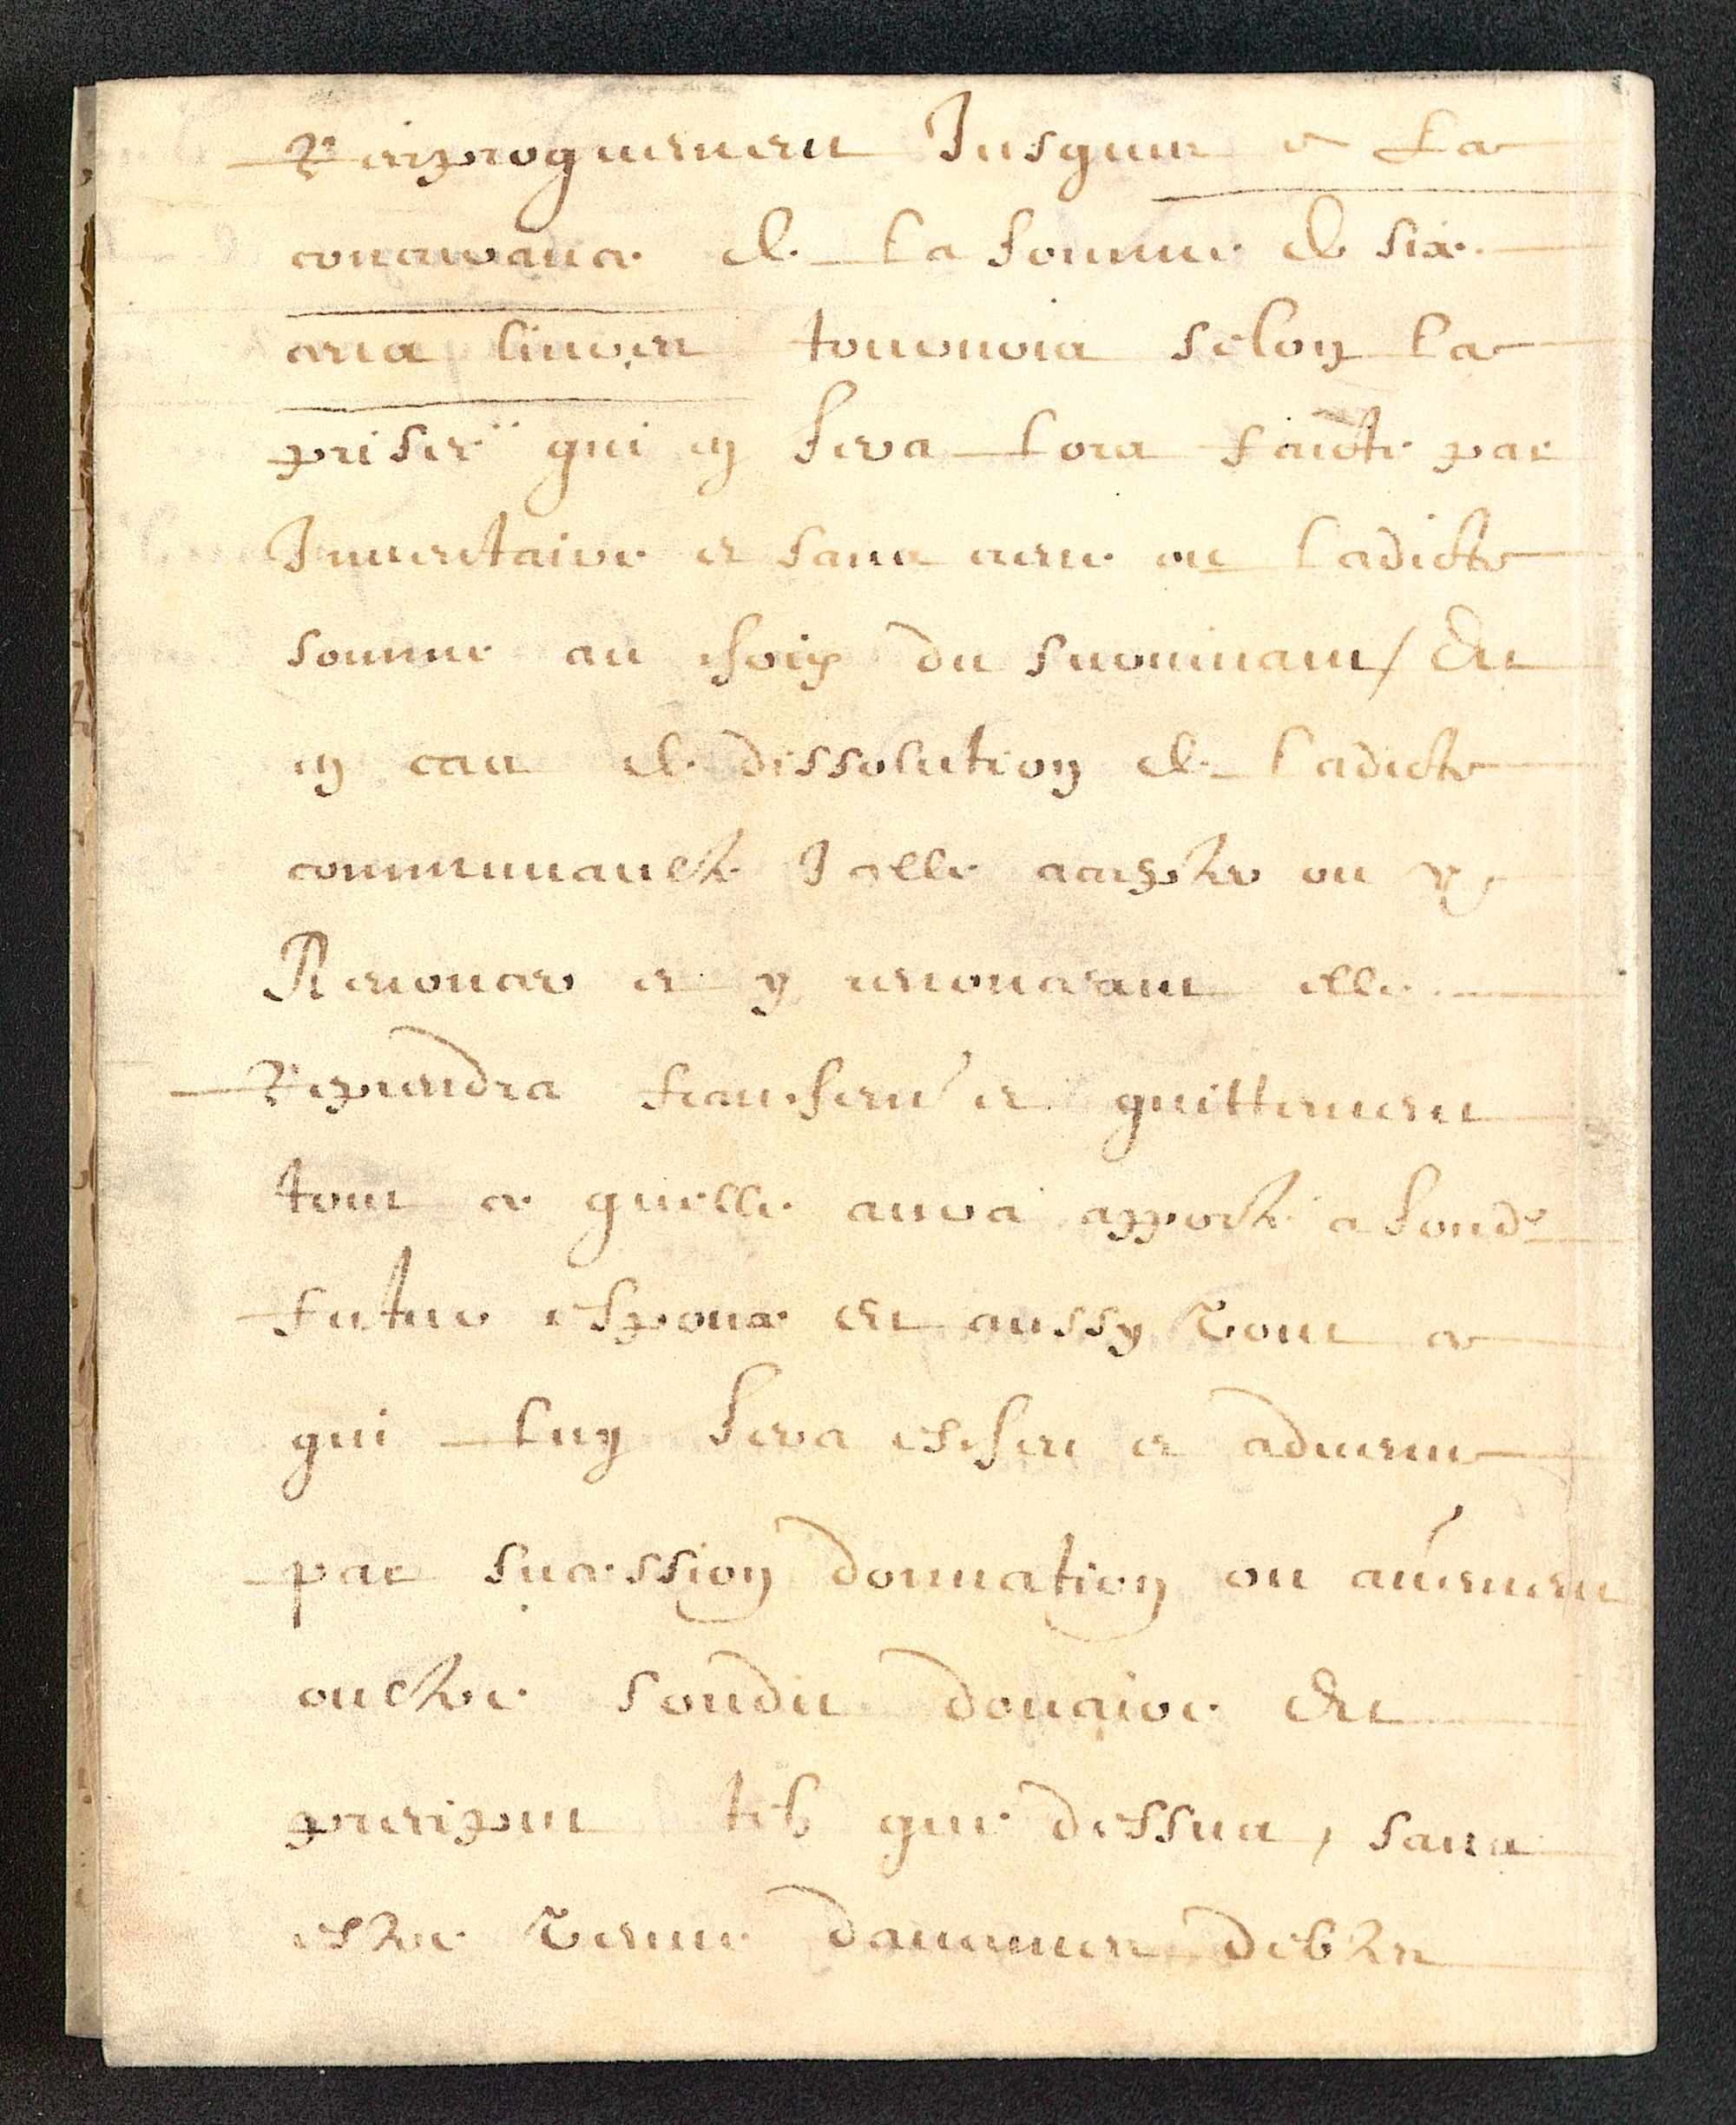 Reciproquement Jusques a La
concurrance de la somme de six
cens livres tournois selon la
prisee qui en sera lors faicte par
Inventaire et sans creue ou ladicte
somme au choix du survivant / Et
en cas de dissolution de ladicte
communaulté Icelle accepter ou y
Renoncer et y renonceant elle
Reprendra franchemt et quittement
tout ce quelle aura apporté a sond
futur espoux Et aussy tout ce
qui luy sera escheu et advenu
par succession donnation ou autrement
oultre sondit douaire Et
preciput tels que dessus, sans
estre tenue daucunes debtes